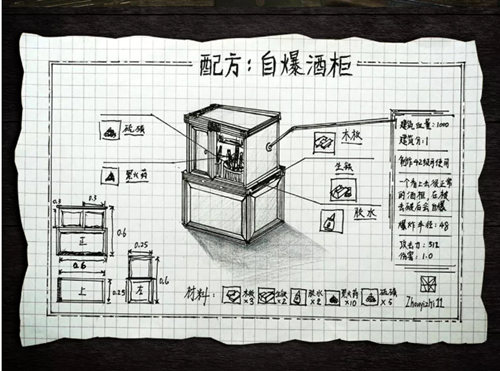 配方：自爆酒柜
硫磺
黑火药
木板
生铁
胶水
建筑血量：1000
建筑分：1
制作42级可使用
一个看上去很正常
的酒柜，在被
击破后会自爆
爆炸半径：48
攻击力：512
伤害：1.0
0.3
0.3
0.3
0.6
正
0.6
上
0.25
0.25
0.6
左
材料：
木板
×3
生铁
×2
胶水
×2
黑火药
×10
硫磺
×5